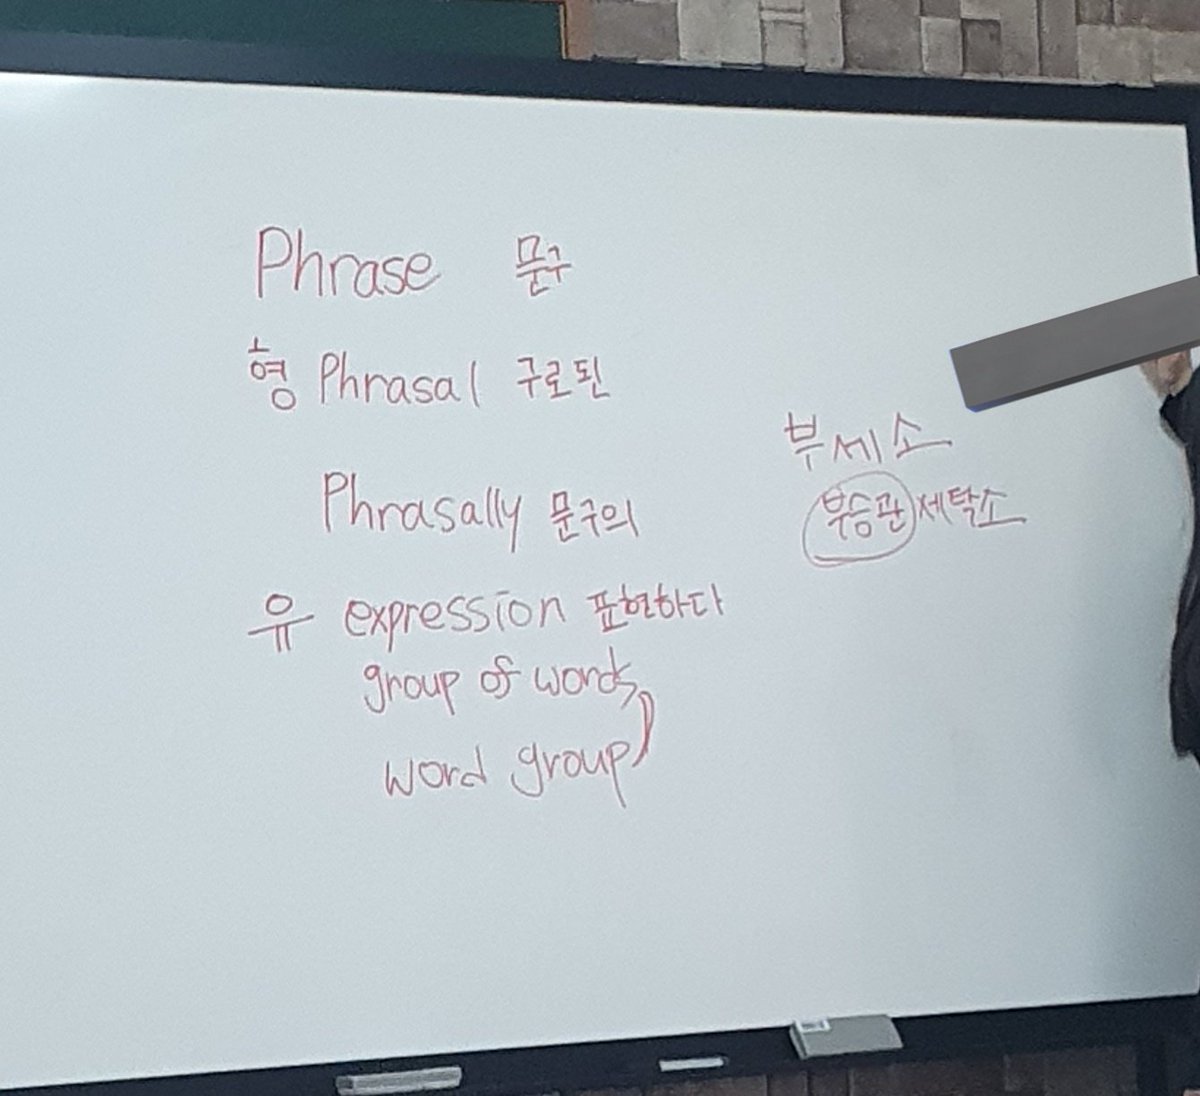 Phrase 문구
형 Phrasal 구로된
Phrasally 문구의
유 expression 표현하다
group of words
word group
부세소
부승관 세탁소